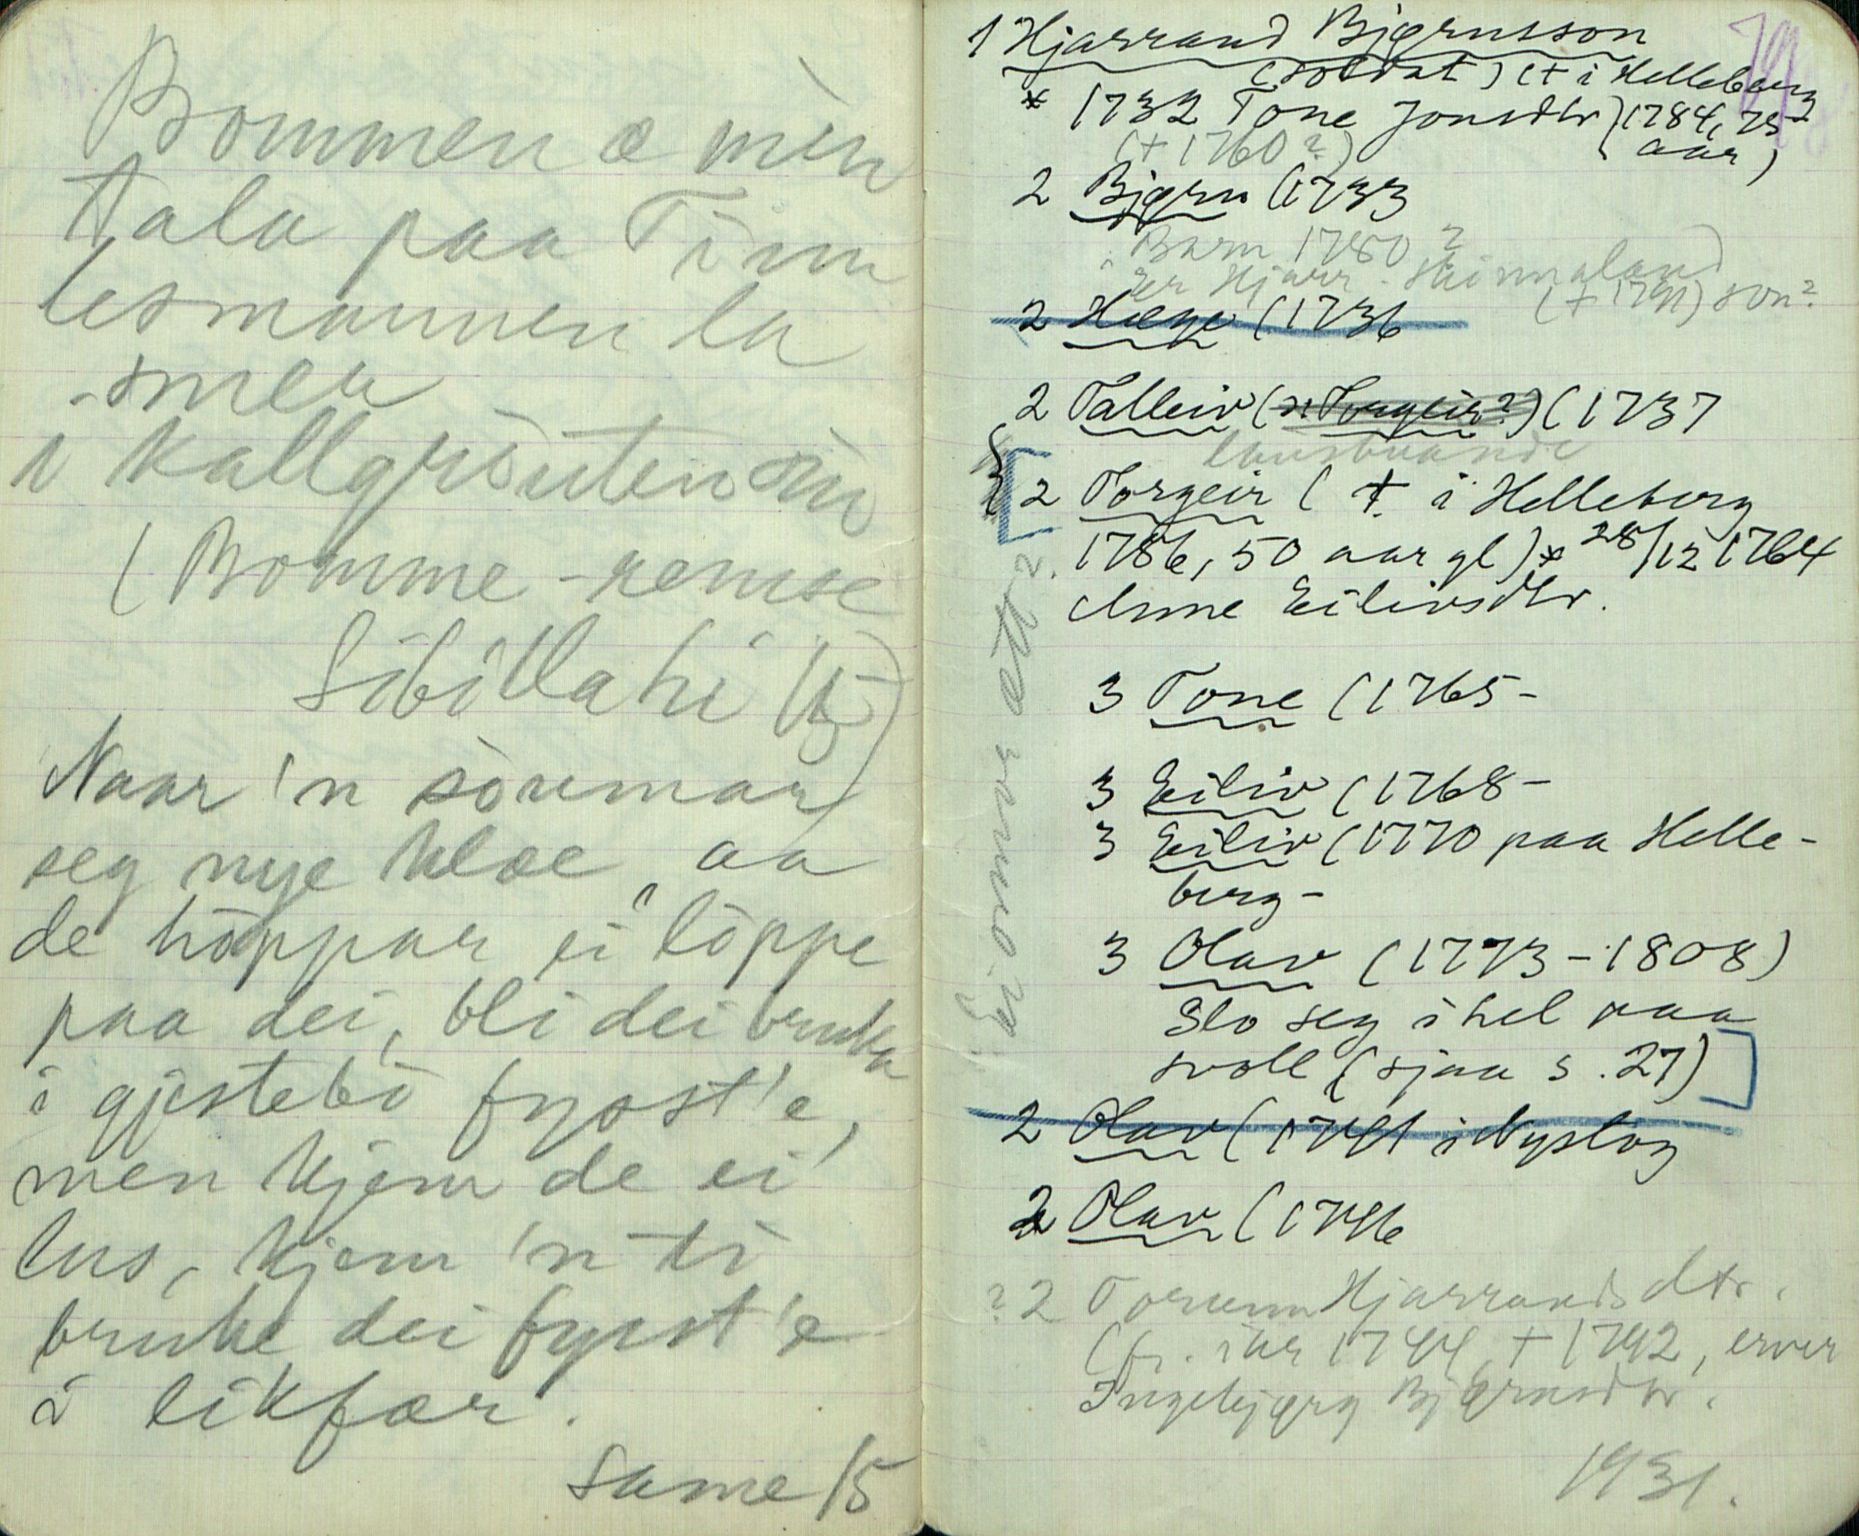 Bommen æ mìn
tala paa Tinn
lesmannen la
smen
i kallgrèuten sin
(Bomme-remse
Sibilla hi 15)
Naar 'n sòumar
seg nye klæe, aa
de höppar ei löppe
paa dei, bli dei bruka
i gjestebò fyost'e,
men kjem de ei
lus, kjem 'n ti
bruke dei fyost'e
i likfær.
same 15
1 Hjarrand Bjørnsson
(soldat) († i Helleberg
* 1732 Tone Jonsdtr) 1784, 75
aar)
(† 1760?)
2 Bjørn (1733
Barn 1780?
Er Hjarr.
(† 1791) son?
2 Hæge (1736
2 Talleiv (= Torgeir?) (1737
lausbuande
2 Torgeir ( † i Helleberg
1786, 50 aar gl) * 28/12 1764
Anne Eilivsdtr.
3 Tone (1765-
3 Eiliv (1768-
3 Eiliv (1770 paa Helle-
berg-
3 Olav (1773-1808)
Slo seg ihel paa
svoll (sjaa s. 27)
2 Olav (1741 i Nystog
2 Olav (1746
? 2 Torunn Hjarrandsdtr.
1744, † 1792, erver
Ingebjørg Bjørnsdtr.
1931.
ætt?